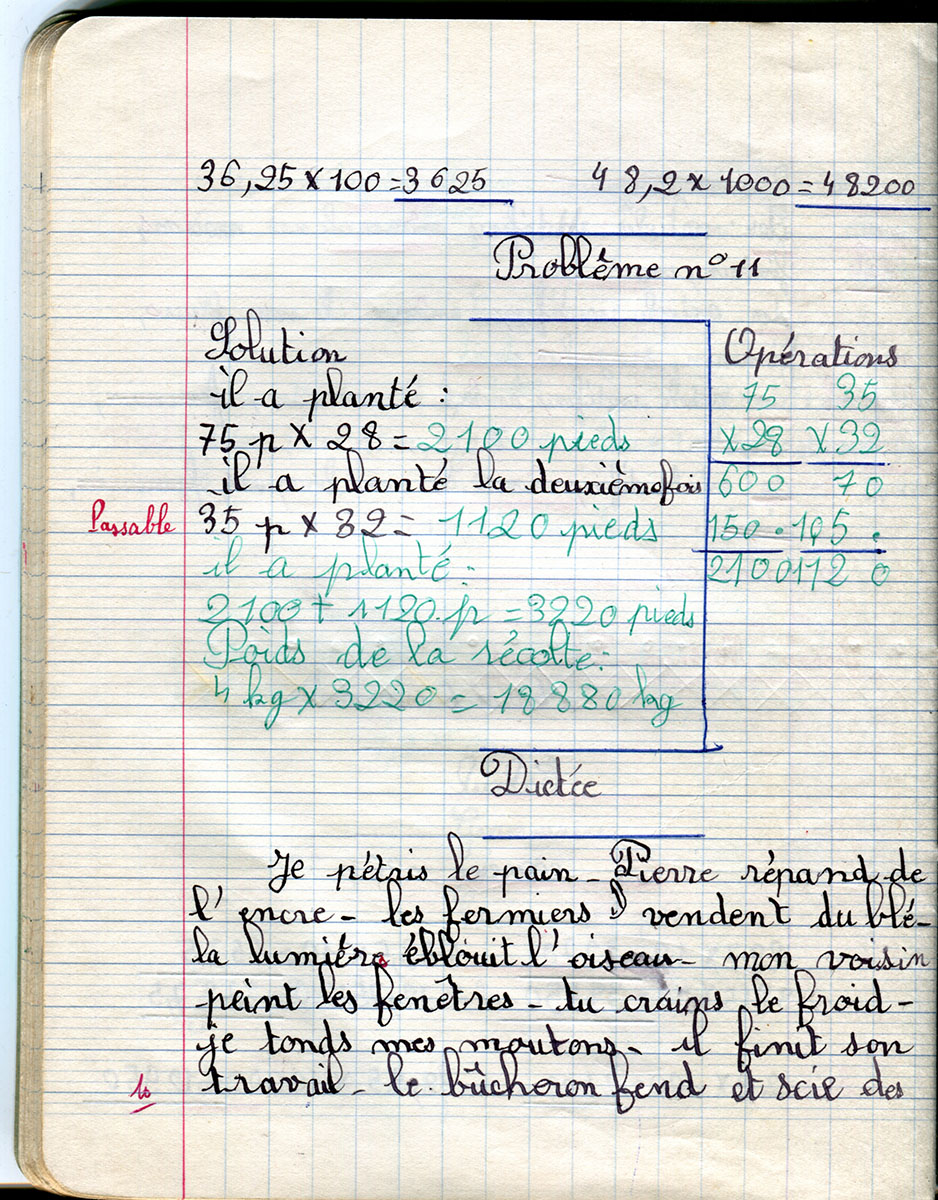 36,25 × 100 = 3625 48,2 × 1000 = 48200
Problème n° 11
Solution
il a planté :
75 p × 28 = 2100 pieds
il a planté la deuxièmefois
35 p × 32 = 1120 pieds
il a planté :
2100 + 1120 p = 3220 pieds
Poids de la récolte :
4 kg × 3220 = 18880 kg
Opérations
75 35
×28 ×32
600 70
150. 105.
2100 1120
Passable
Dictée
Je pétris le pain - Pierre répand de
l'encre - les fermiers vendent du blé -
la lumière éblouit l'oiseau - mon voisin
peint les fenêtres - tu crains le froid -
je tonds mes moutons - il finit son
travail - le bûcheron fend et scie des
10